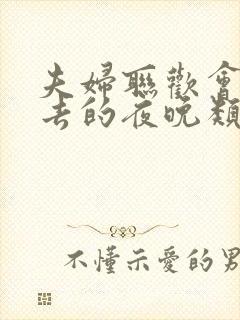 夫婦聯歡會
去的夜晚類
不懂示愛的男